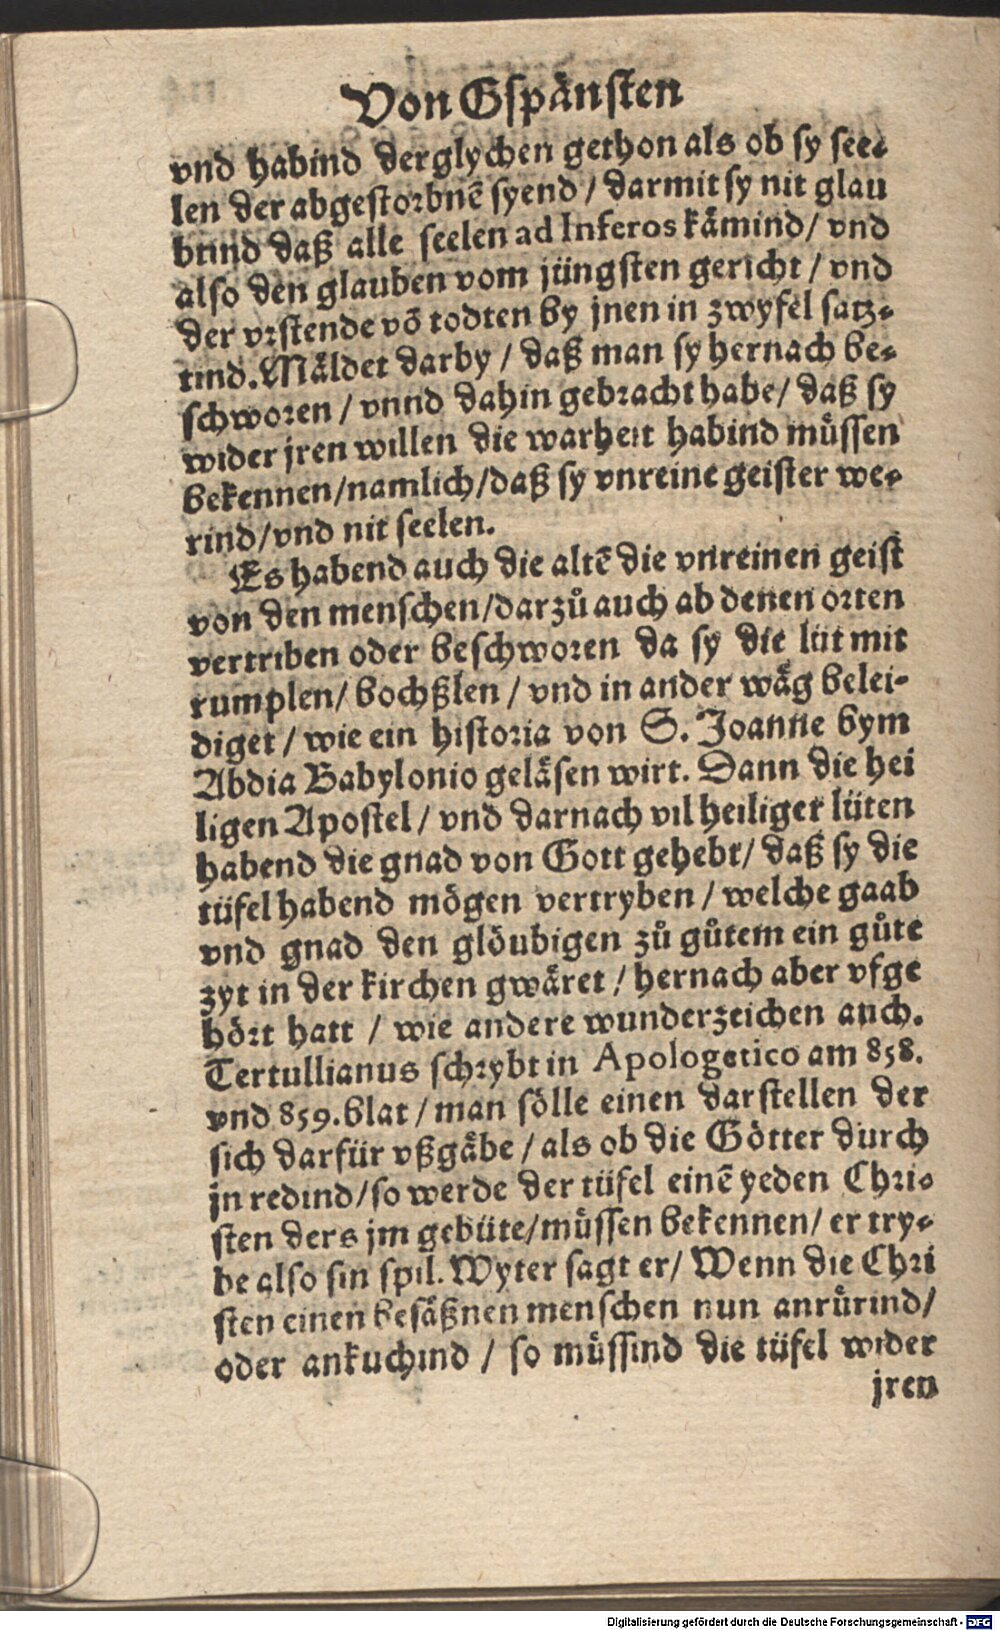 Von Gspänsten
vnd habind derglychen gethon als ob sy see⸗
len der abgestorbnẽ syend / darmit sy nit glau
btind daß alle seelen ad Inferos kämind / vnd
also den glauben vom jüngsten gericht / vnd
der vrstende võ todten by jnen in zwyfel satz⸗
tind. Mäldet darby / daß man sy hernach be⸗
schworen / vnnd dahin gebracht habe / daß sy
wider jren willen die warheit habind müssen
bekennen / namlich / daß sy vnreine geister we⸗
rind / vnd nit seelen.
Es habend auch die altẽ die vnreinen geist
von den menschen / darzů auch ab denen orten
vertriben oder beschworen da sy die lüt mit
rumplen / bochßlen / vnd in ander wäg belei⸗
diget / wie ein historia von S. Joanne bym
Abdia Babylonio geläsen wirt. Dann die hei
ligen Apostel / vnd darnach vil heiliger lüten
habend die gnad von Gott gehebt / daß sy die
tüfel habend mögen vertryben / welche gaab
vnd gnad den glöubigen zů gůtem ein gůte
zyt in der kirchen gwäret / hernach aber vfge
hört hatt / wie andere wunderzeichen auch.
Tertullianus schrybt in Apologetico am 858.
vnd 859. blat / man sölle einen darstellen der
sich darfür vßgäbe / als ob die Götter durch
jn redind / so werde der tüfel einẽ yeden Chri⸗
sten ders jm gebüte / müssen bekennen / er try⸗
be also sin spil. Wyter sagt er / Wenn die Chri
sten einen besäßnen menschen nun anrürind /
oder ankuchind / so müssind die tüfel wider
jren
Digitalisierung gefördert durch die Deutsche Forschungsgemeinschaft - DFG